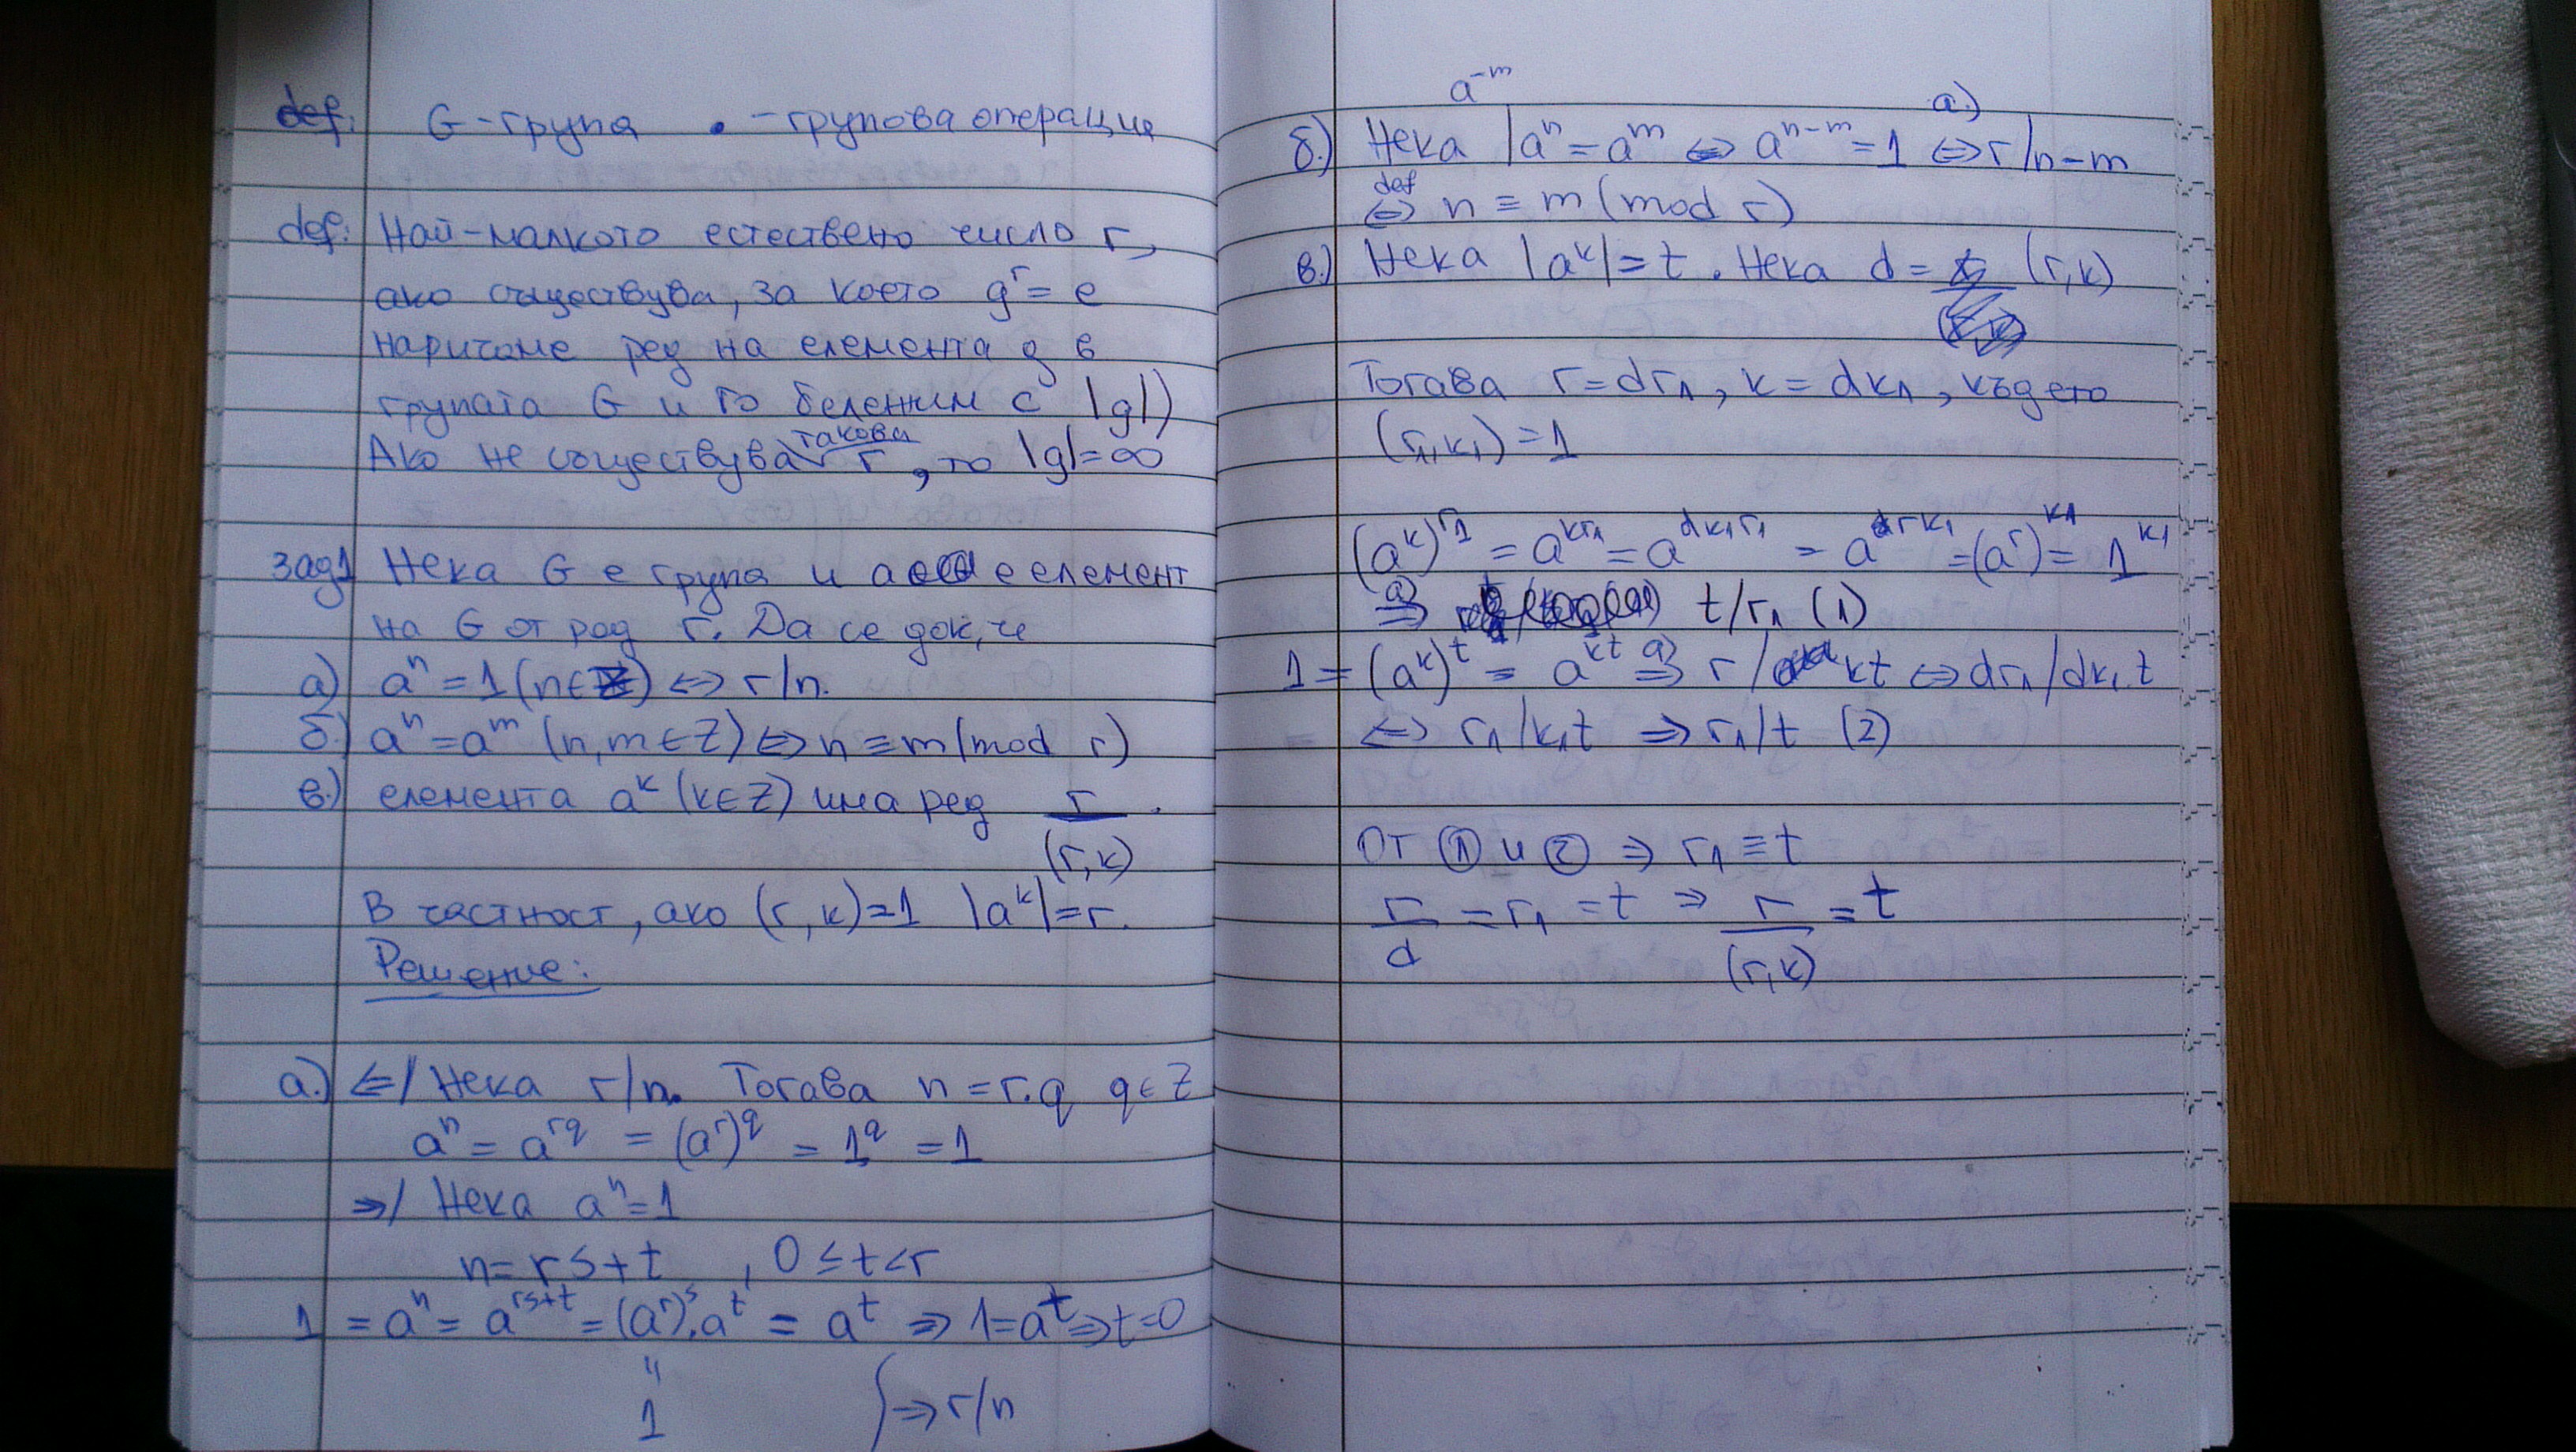 def: G - група • - групова операция
def: Най-малкото естествено число r,
ако съществува, за което gʳ = e
наричаме ред на елемента g в
групата G и го бележим с |g|)
такова
Ако не съществува r, то |g| = ∞
зад1 Нека G е група и a е елемент
на G от ред r. Да се док, че
а) aⁿ = 1 (n ∈ Z) ⇔ r/n.
б.) aⁿ = aᵐ (n, m ∈ Z) ⇔ n ≡ m (mod r)
в.) елемента aᵏ (k ∈ Z) има ред r/(r,k).
В частност, ако (r, k) = 1 |aᵏ| = r.
Решение:
а.) ⇐/ Нека r/n. Тогава n = r.q q ∈ Z
aⁿ = a^{rq} = (aʳ)^q = 1^q = 1
⇒/ Нека aⁿ = 1
n = rs + t , 0 ≤ t < r
1 = aⁿ = a^{rs+t} = (aʳ)ˢ.aᵗ = aᵗ ⇒ 1 = aᵗ ⇒ t = 0
"
1 } ⇒ r/n
a⁻ᵐ а)
б.) Нека | aⁿ = aᵐ ⇔ aⁿ⁻ᵐ = 1 ⇔ r/n-m
def
⇔ n ≡ m (mod r)
в.) Нека |aᵏ| = t. Нека d = (r, k)
Тогава r = dr₁, k = dk₁, където
(r₁, k₁) = 1
(aᵏ)^{r₁} = a^{kr₁} = a^{dk₁r₁} = a^{rk₁} = (aʳ)^{k₁} = 1^{k₁}
а)
⇒ t/r₁ (1)
1 = (aᵏ)ᵗ = a^{kt} ⇒ а) r/kt ⇔ dr₁/dk₁t
⇔ r₁/k₁t ⇒ r₁/t (2)
От ① и ② ⇒ r₁ ≡ t
r/d = r₁ = t ⇒ r/(r,k) = t